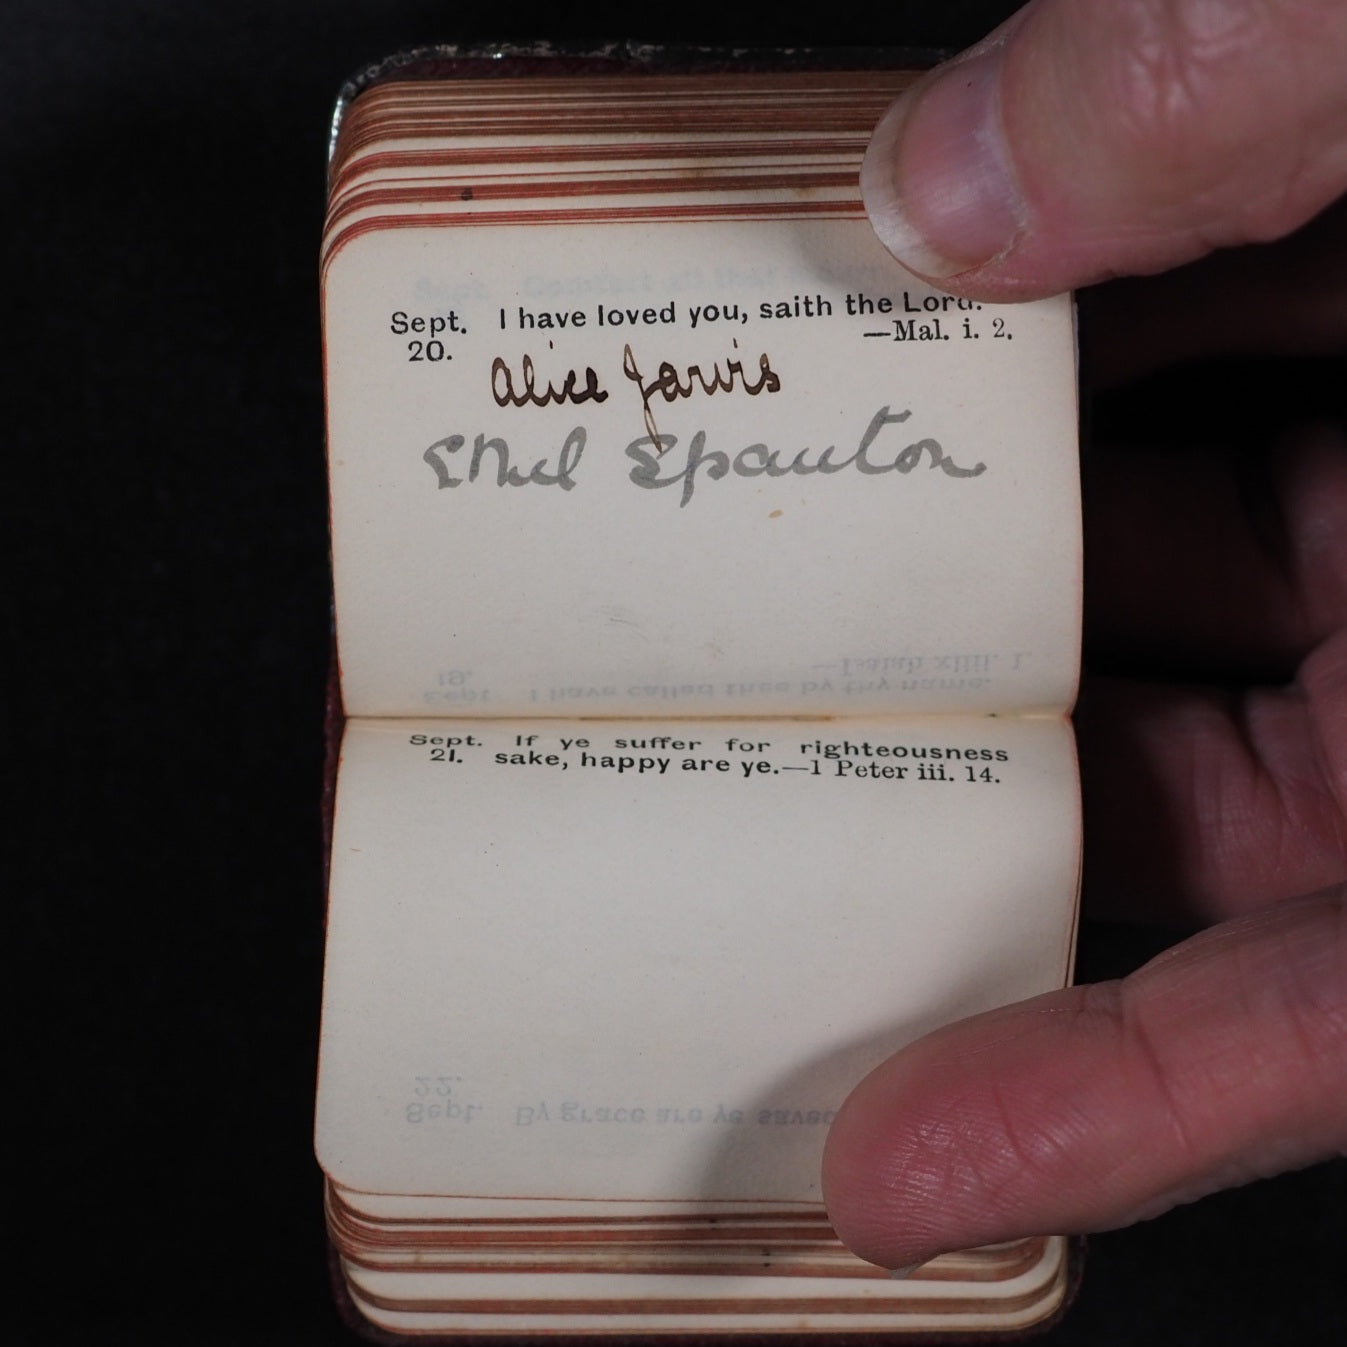 Sept. I have loved you, saith the Lord.
20. —Mal. i. 2.
Alice Jarvis
Ethel Spanton
Sept. If ye suffer for righteousness
21. sake, happy are ye.—1 Peter iii. 14.